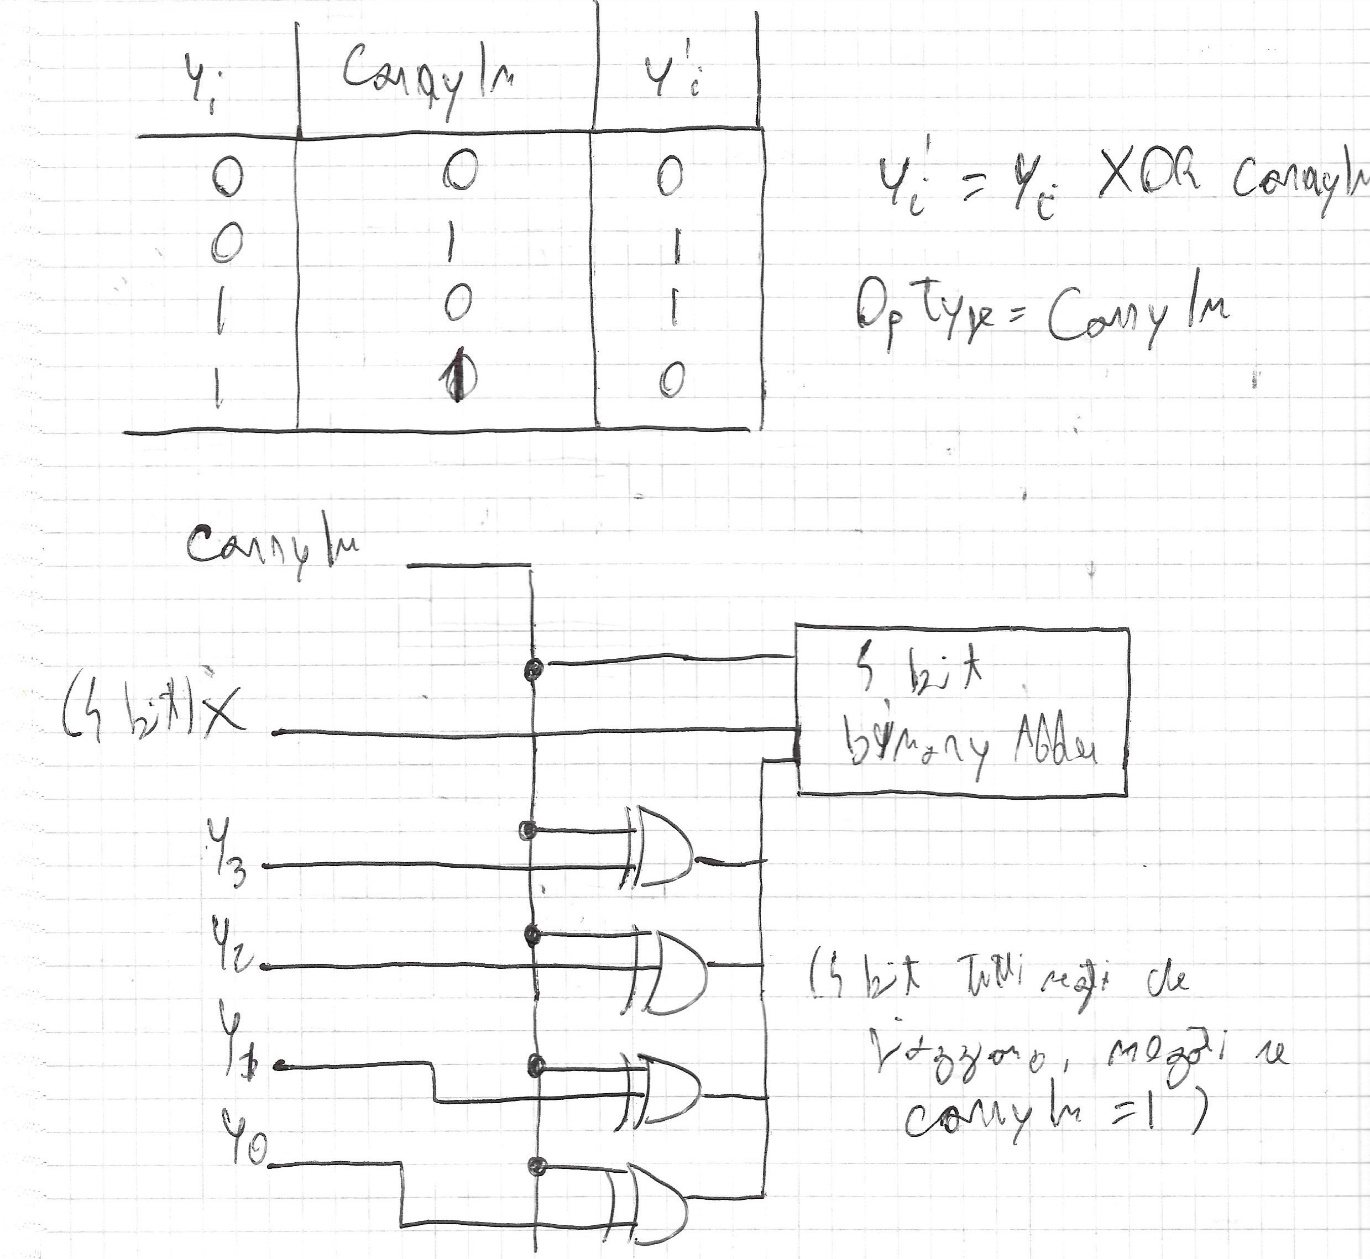 Yi CarryIn Y'i
0 0 0
0 1 1
1 0 1
1 1 0
Y'i = Yi XOR CarryIn
OpType = CarryIn
CarryIn
(4 bit) X
4 bit
binary Adder
Y3
Y2
Y1
Y0
(4 bit tutti negati
negati se
carryIn = 1)